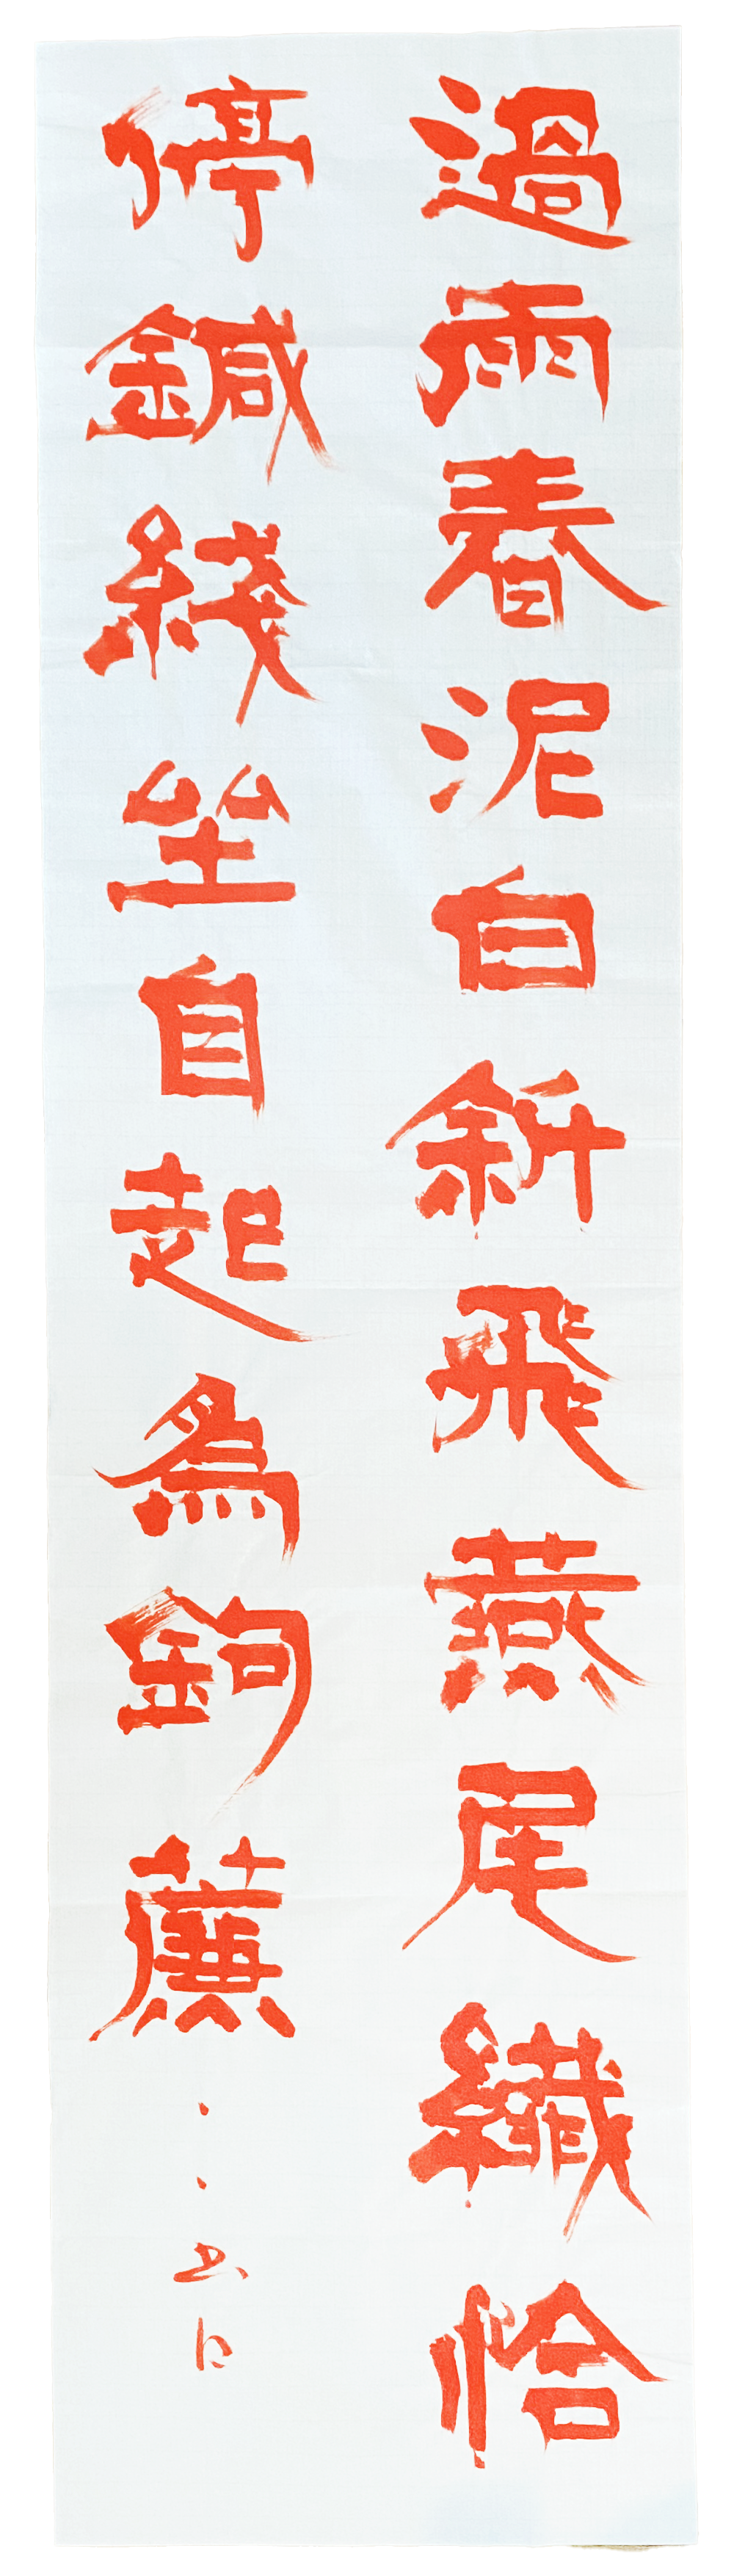 過雨春泥白斜飛燕尾纖恰
停鍼綫坐自起為鉤簾